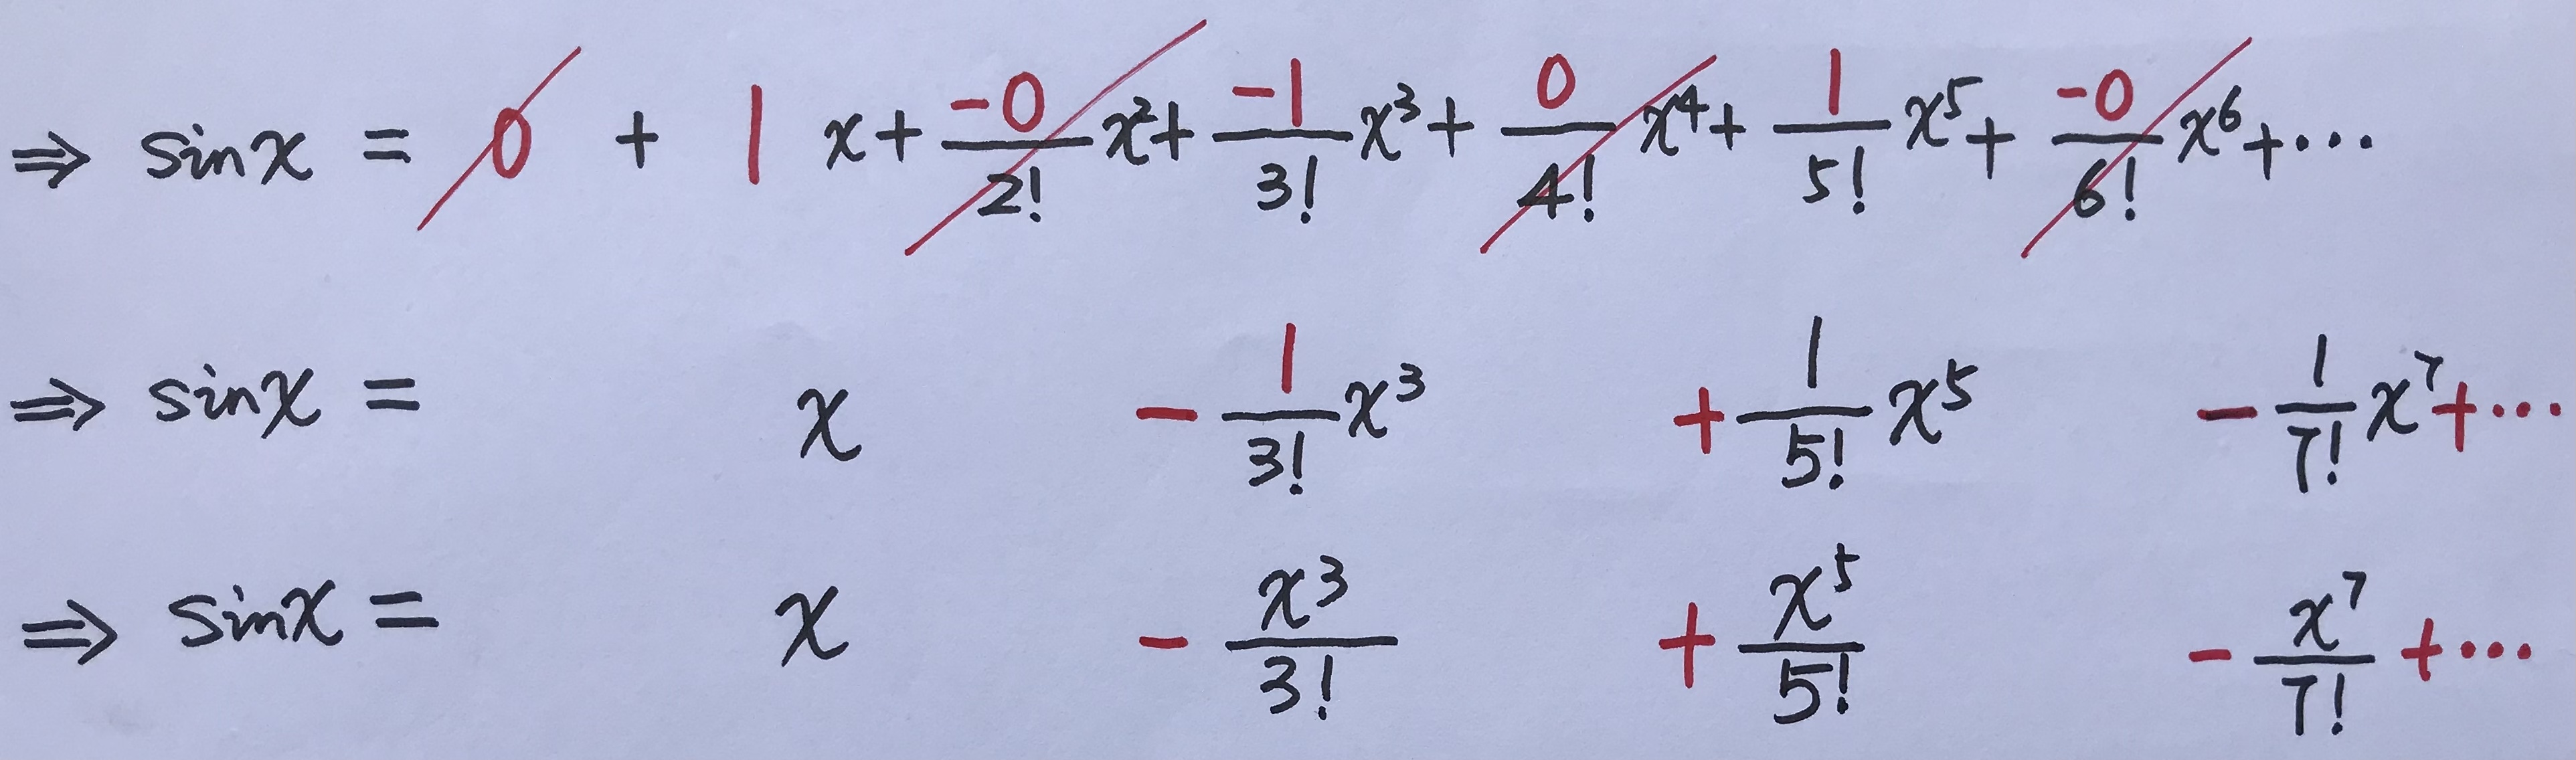 ⇒ sinx = 0 + 1 x + -0/2! x² + -1/3! x³ + 0/4! x⁴ + 1/5! x⁵ + -0/6! x⁶ + ⋯
⇒ sinx = x - 1/3! x³ + 1/5! x⁵ - 1/7! x⁷ + ⋯
⇒ sinx = x - x³/3! + x⁵/5! - x⁷/7! + ⋯